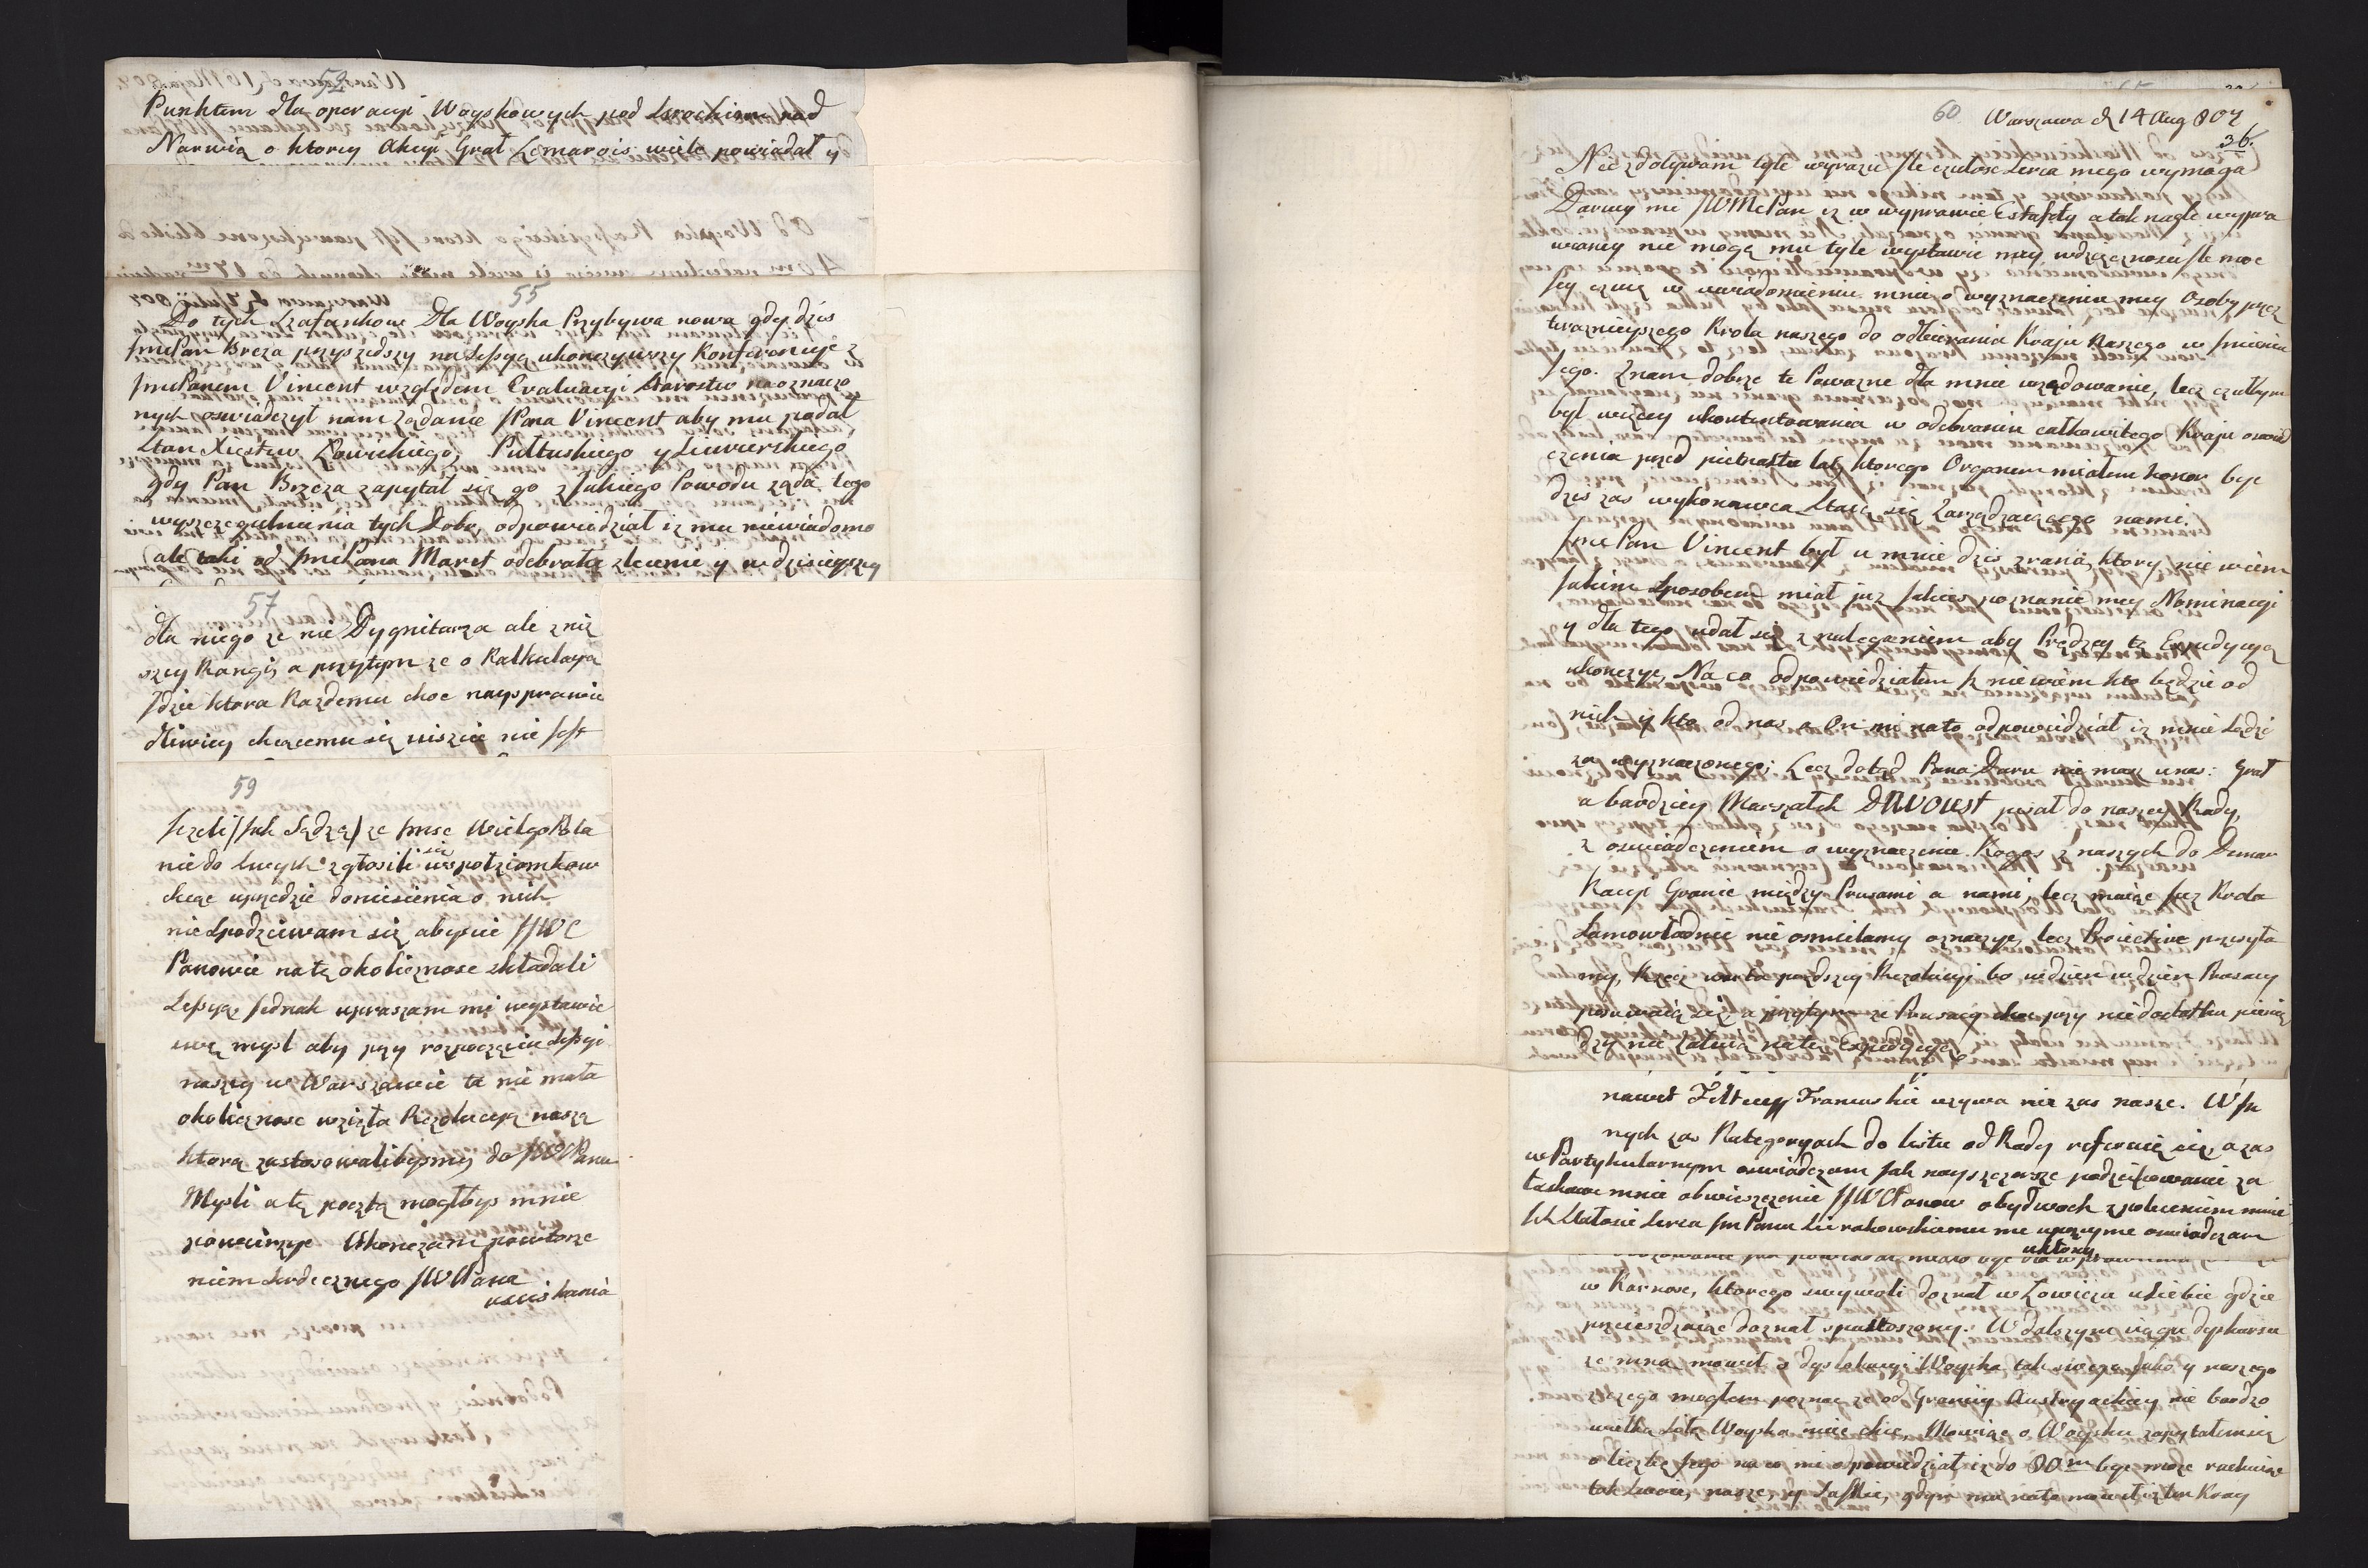 53
Punktem dla operacyi Woyskowych pod Serockiem nad
Narwią o ktorey Akcyi Grał Lemarois wiele powiadał y
55
Do tych Szafunkow Dla Woyska Przybywa nowa gdy dzis
JmcPan Breza przyszedszy na Sessyą ukonczywszy Konferencyę z
JmcPanem Vincent względem Ewaluacyi Starostw naoznaczo
nych oswiadczył nam Ządanie JPana Vincent aby mu podał
Stan Xięstw Łowickiego, Pułtuskiego y Siewierskiego
gdy Pan Brzeza zapytał się go z Jakiego Powodu ząda tego
wyszczegulnienia tych Dobr, odpowiedział iz mu niewiadomo
ale taki od JmcPana Maret odebrał zlecenie y w dzisieyszey
57
dla niego ze nie Dygnitarza ale zniz
szey Rangi, a przytym ze o Kalkulacyą
Jdzie ktora Kazdemu choc naysprawie
dliwiey chcącemu się uiscic nie Jest
59
Jezeli /Jak Sądzą/ ze Jmsc Wielgo Pola
nie do Swych zgłosili się wspołziomkow
chcąc uprzedzic doniesienia o nich
nie Spodziewam się abyscie JJWC
Panowie na tę okolicznosc składali
Sessyą, Jednak upraszam mi wystawic
swą mysl aby przy rozpoczęciu Sessyi
naszey w Warszawie ta nie mała
okolicznosc wzięła Rezolucyą naszą
ktorą zastosowalibysmy do JWCPana
Mysli a tę pocztą mogłbys mnie
powierzyc Ukonczam powtorze
niem Serdecznego JWCPana
usciskania
60
Warszawa d 14 Aug 807
36.
Nie zdoływam tyle wyrazu Jle czułosc Serca mego wymaga
Daruy mi JWMcPan iz w wyprawie Estafety a tak nagle wypra
wioney nie mogę mu tyle wystawic mey wdzięcznosci Jle moc
Jey czuię w uwiadomieniu mnie o wyznaczeniu mey Osoby przez
terazniejszego Krola naszego do odbierania Kraju Naszego w Jmieniu
Jego. Znam dobrze te Powazne dla mnie urzędowanie, lecz czułbym
był więcey ukontentowania w odebraniu całkowitego Kraju oswiad
czenia przed pietnastu lat, ktorego Organem miałem honor byc
dzis zas wykonawca Staię się Zarządzaiącego nami.
Jmc Pan Vincent był u mnie dzis zrana, ktory, nie wiem
Jakim Sposobem miał juz Jakies poznanie mey Nominacyi
y dla tego udał się z naleganiem aby Prędzey tę Expedycyą
ukonczyc, Na co odpowiedziałem iz niewiem kto będzie od
nich y kto od nas a On mi na to odpowiedział iz mnie Sądzi
za wyznaczonego; Lecz dotąd Pana Daru nie masz unas: Grał
a bardziey Marszałek DAVOUST pisał do naszey Rady,
z oswiadczeniem o wyznaczenie Kogos z naszych do Demar
kacyi Granic między Prusami a nami, lecz maiąc Juz Krola
Samowładnie nie osmielamy oznaczyc, lecz Proiective przesyła
my, Rzecz warta prędszey Rezolucyi bo w dzien w dzien Prusacy
posuwaią się, a przytym ze Prusacy choc przy niedostatku pienię
dzy nie załuią na tę Expedycyą
nawet Żołnierzy Francuskie uzywa nie zas nasze. W In
nych zas Kategoryach do listu od Rady referuię się, a zas
w Partykularnym oswiadczam Jak nayszczersze podziękowanie za
łaskawe mnie obwieszczenie JJWCPanow obydwoch z poleceniem mnie
Jch Stałosci Serca Jm Panu Sierakowskiemu me uprzeyme oswiadczam
ukłony
w Karnosc, ktorego swywoli doznał w Łowiczu u siebie gdzie
przeieszdzaiąc doznał spustoszony: W dalszym ciągu dyskursu
ze mną mowił o dyslokacyi Woyska tak swego Jako y naszego
zczego mogłem poznac ze od Granicy Austryackiey nie bardzo
wielką Siłę Woyska miec chce, Mowiąc o Woysku zapytałem się
o liczbę Jego na co mi odpowiedział iz do 80m byc moze rachuiąc
tak Swoie, nasze, y Saskie, gdym mu na to mowił iz ten Kray